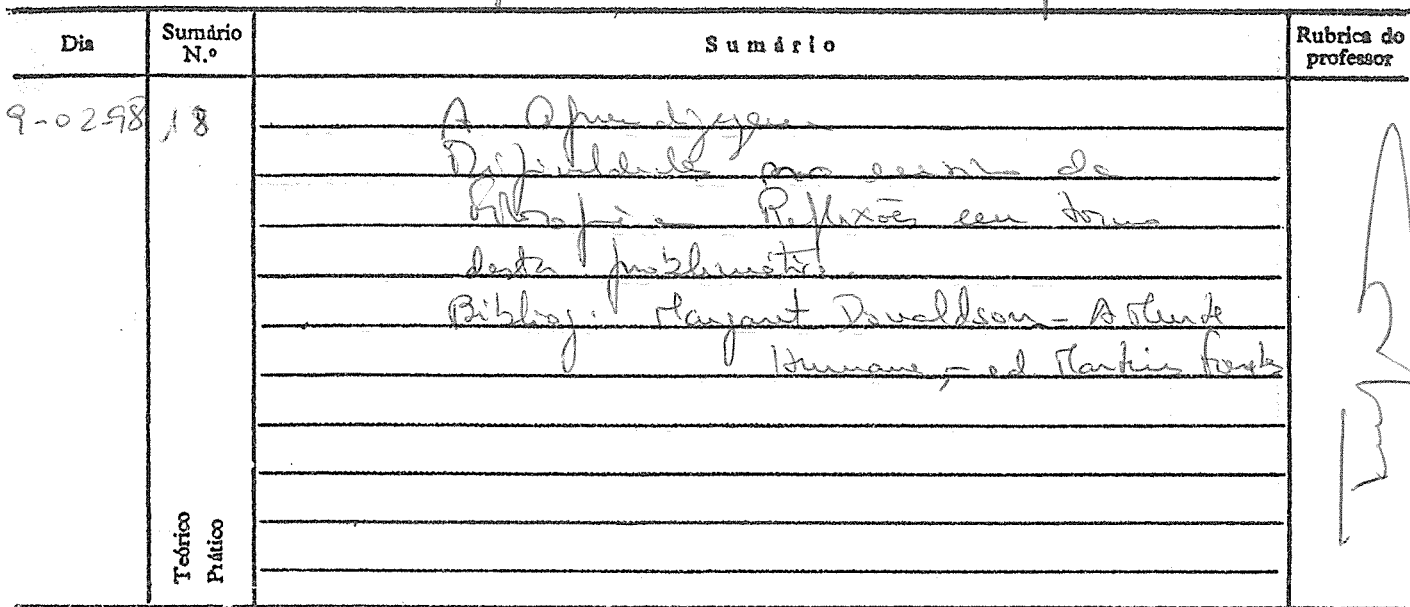 Dia
Sumário N.º
Sumário
Rubrica do professor
9-02-98
18
A Aprendizagem
Dificuldades no ensino da
Filosofia Reflexões em torno
desta problemática.
Bibliog. Margaret Donaldson - A Mente
Humana, - ed Martins Fontes
Teórico
Prático